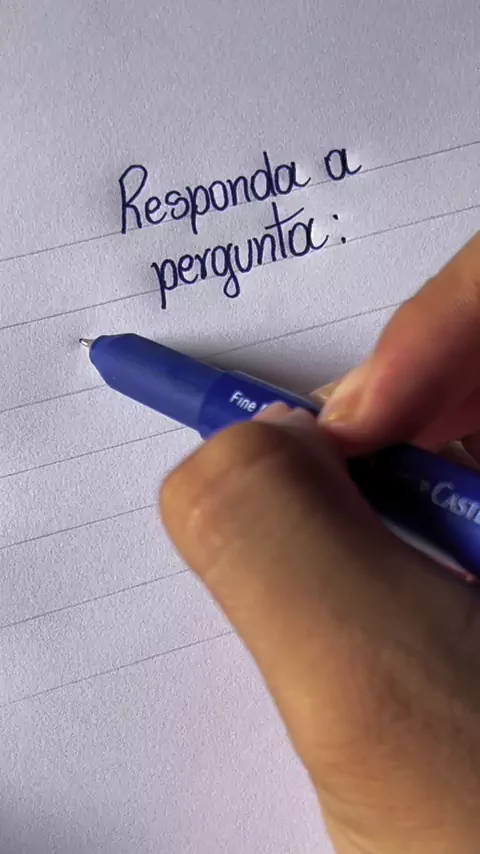 Responda a
pergunta:
Fine